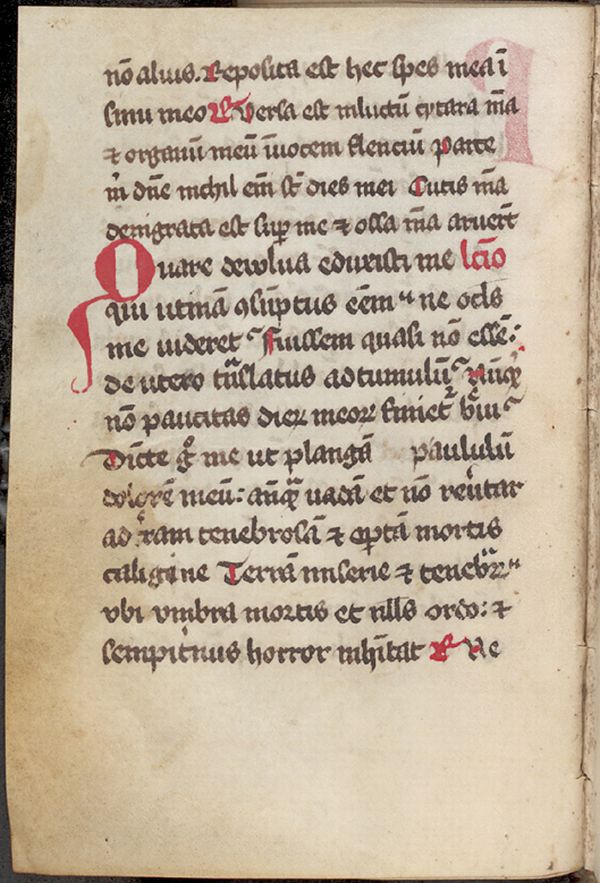 nō alius. Reposita est hec spes mea ī
sinu meo R Versa est inluctū cytara m̄a
⁊ organū meū īuocem flenciū Parce
m̄ dn̄e nichil em̄ st̄ dies mei Cutis m̄a
denigrata est sup̄ me ⁊ ossa m̄a aruerūt
Quare dewlua eduxisti me lc̄io
qui utinā ꝯsūptus eēm ne ocls
me uideret Fuissem quasi nō essē:
de utero tn̄slatus adtumulū Nūqͥ
nō paucitas dieꝝ meoꝝ finietᷣ bͤui
Dimitte gͦ me ut plangā paululū
dolorē meū: anq̄ uadā et nō reūtar
ad t̄ram tenebrosā ⁊ op̄tā mortis
caligine Terrā miserie ⁊ tenebraꝝ
vbi vmbra mortis et nlls ordo: ⁊
sempitnus horror inhītat R Ne